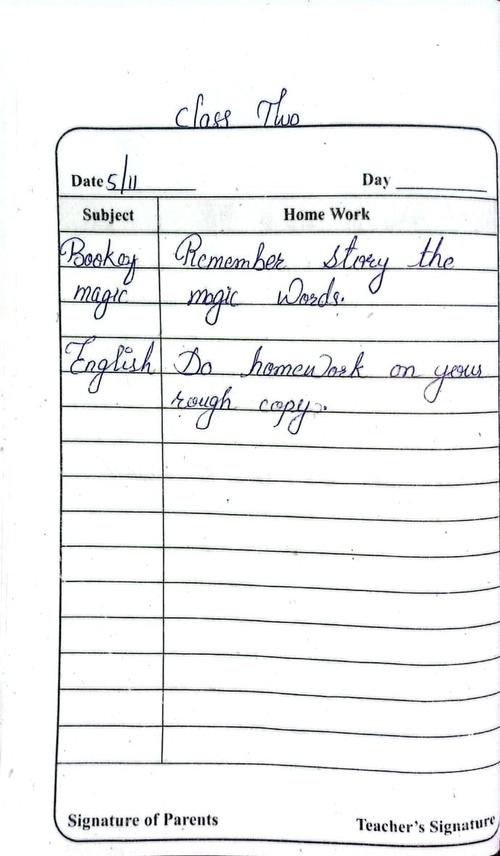 Class Two
Date 5/11 Day
Subject Home Work
Bookof Remember story the
magic magic Words.
English Do homework on your
rough copy.
Signature of Parents Teacher's Signature